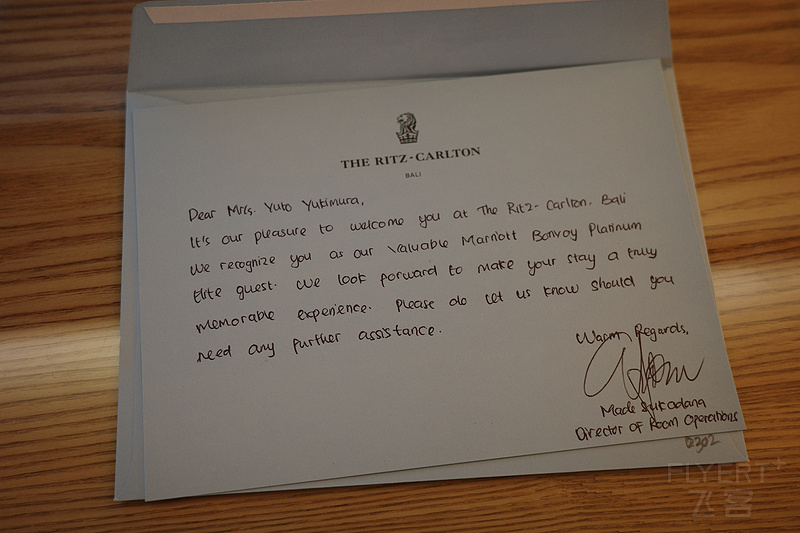 THE RITZ-CARLTON
BALI
Dear Mrs. Yuto Yukimura,
It's our pleasure to welcome you at The Ritz-Carlton, Bali
We recognize you as our Valuable Marriott Bonvoy Platinum
Elite guest. We look forward to make your stay a truly
memorable experience. Please do let us know should you
need any further assistance.
Warm Regards,
Made Sukadana
Director of Room Operations
FLYERT+
飞客